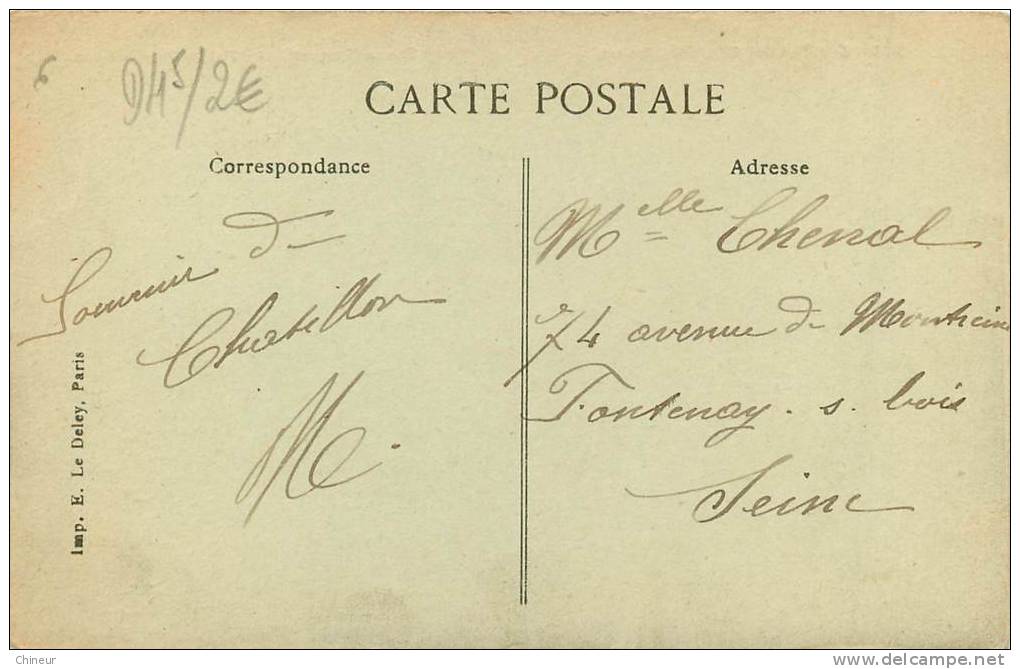 6
D45/2€
CARTE POSTALE
Correspondance
Adresse
Souvenir de
Chatillon
M.
Melle Chenal
74 avenue de
Fontenay. s. bois
Seine
Imp. E. Le Deley, Paris
Chineur
delcampe.net